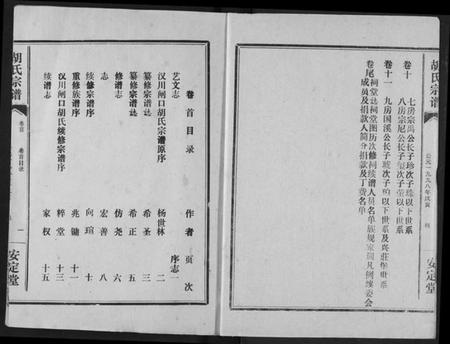 胡氏宗谱
公元一九九八年戊寅
安定堂
卷十
七房宗禹公长子珍次子珠以下世系
八房宗尼公长子
次子
以下世系
卷十一
九房国溪公长子琥次子
以下世系及
世系
卷尾祠堂志祠堂图历次修祠续谱人员名单族规家训凡例续委会
成员及捐款人简介捐款及丁费名单
胡氏宗谱
卷首
卷首目录
一
安定堂
卷首目录
作者
页次
艺文志
序志一
汉川闸口胡氏宗谱原序
杨世林
二
纂修宗谱志
希圣
三
纂修宗谱志
希正
五
修谱志
仿尧
六
志
宏善
八
续修宗谱序
向瑄
十
重修族谱序
兆锄
十一
汉川闸口胡氏续修宗谱序
粹堂
十三
续谱志
家权
十五